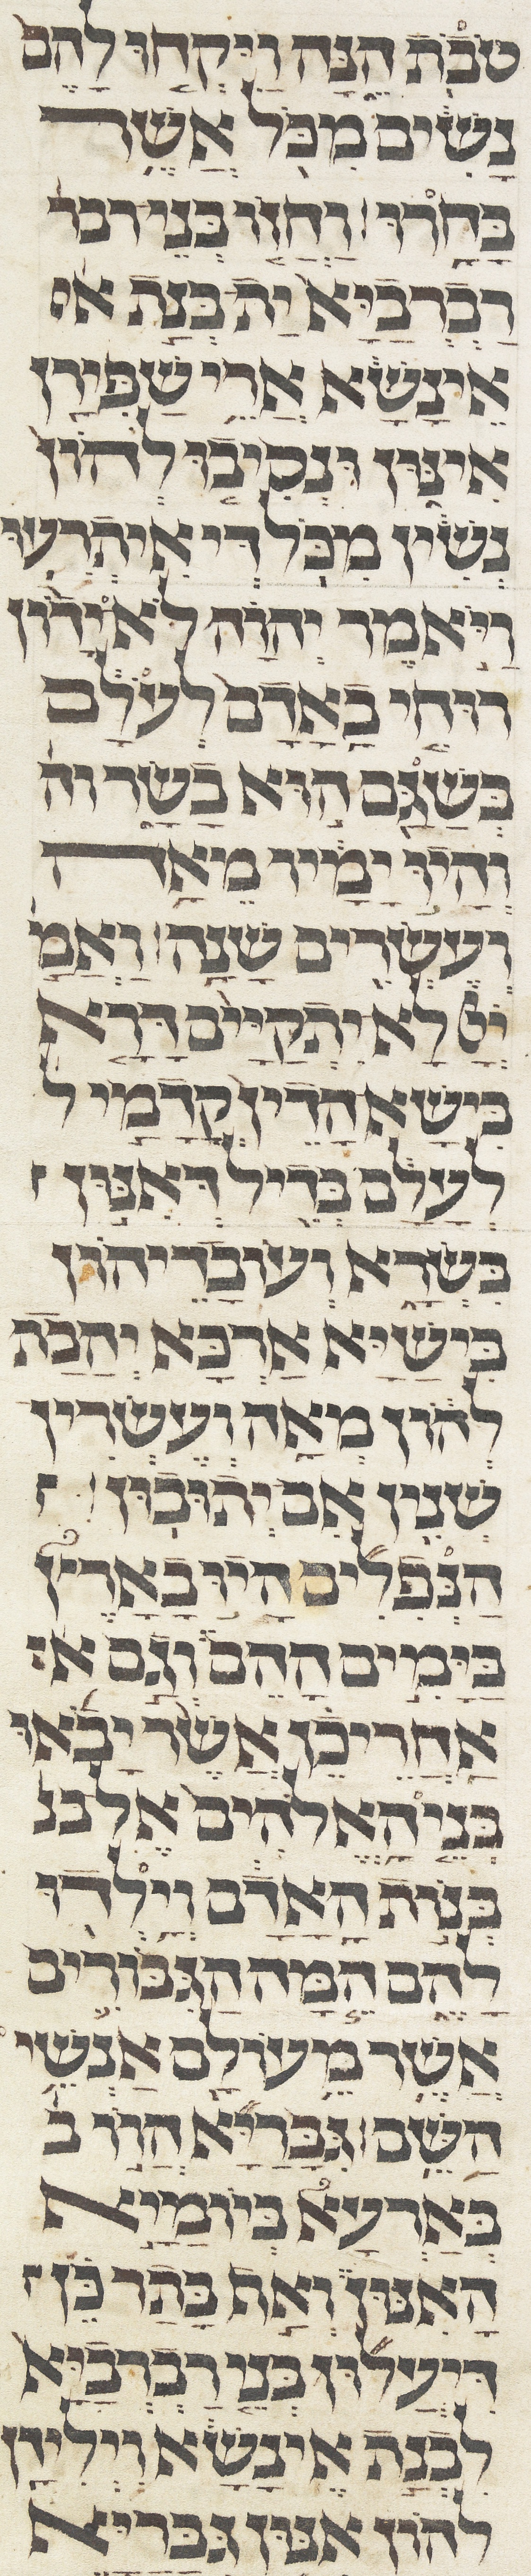 טֹבֹת הֵנָּה וַיִּקְחוּ לָהֶם
נָשִׁים מִכֹּל אֲשֶׁר
בָּחָרוּ׃ וַחֲזוֹ בְּנֵי רבר
רַבְרְבַיָּא יָת בְּנָת אי
אֱינָשָׁא אֲרֵי שַׁפִּירָן
אִינּוּן וּנְסִיבוּ לְהוֹן
נְשִׁין מִכֹּל דִּי אִיתְרְעוּ
וַיֹּאמֶר יְהוָה לֹא יָדוֹן
רוּחִי בָאָדָם לְעֹלָם
בְּשַׁגַּם הוּא בָשָׂר וה
וְהָיוּ יָמָיו מֵאָה
וְעֶשְׂרִים שָׁנָה׃ וַאֲמַ
יְיָ לָא יִתְקַיַּים דָּרָא
בִּישָׁא הָדֵין קֳדָמַי ל
לְעָלַם בְּדִיל דְּאִנּוּן
בִּשְׂרָא וְעוֹבָדֵיהוֹן
בִּישַׁיָּא אַרְכָּא יְהִבַת
לְהוֹן מְאָה וְעֶשְׂרִין
שְׁנִין אִם יְתוּבוּן׃
הַנְּפִלִים הָיוּ בָאָרֶץ
בַּיָּמִים הָהֵם וְגַם א
אַחֲרֵי כֵן אֲשֶׁר יָבֹאוּ
בְּנֵי הָאֱלֹהִים אֶל בנ
בְּנוֹת הָאָדָם וְיָלְדוּ
לָהֶם הֵמָּה הַגִּבֹּרִים
אֲשֶׁר מֵעוֹלָם אַנְשֵׁי
הַשֵּׁם׃ גִּבָּרַיָּא הֲווֹ ב
בְּאַרְעָא בְּיוֹמַיָּא
הָאִנּוּן וְאַף בָּתַר כֵּן
דְּיֵעֲלוּן בְּנֵי רַבְרְבַיָּא
לְבְנָת אֱינָשָׁא וִילִידָן
לְהוֹן אִנּוּן גִּבָּרַיָּא